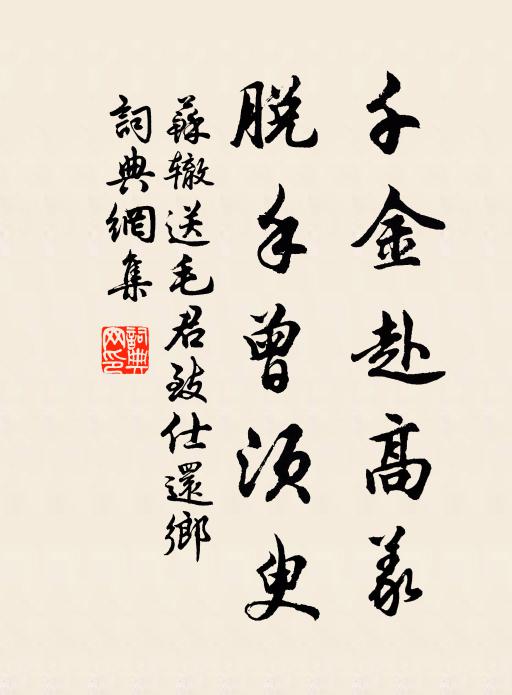 千金赴高義
脱手曾須臾
蘇轍送毛君致仕還鄉
詞典網集
詞典網印